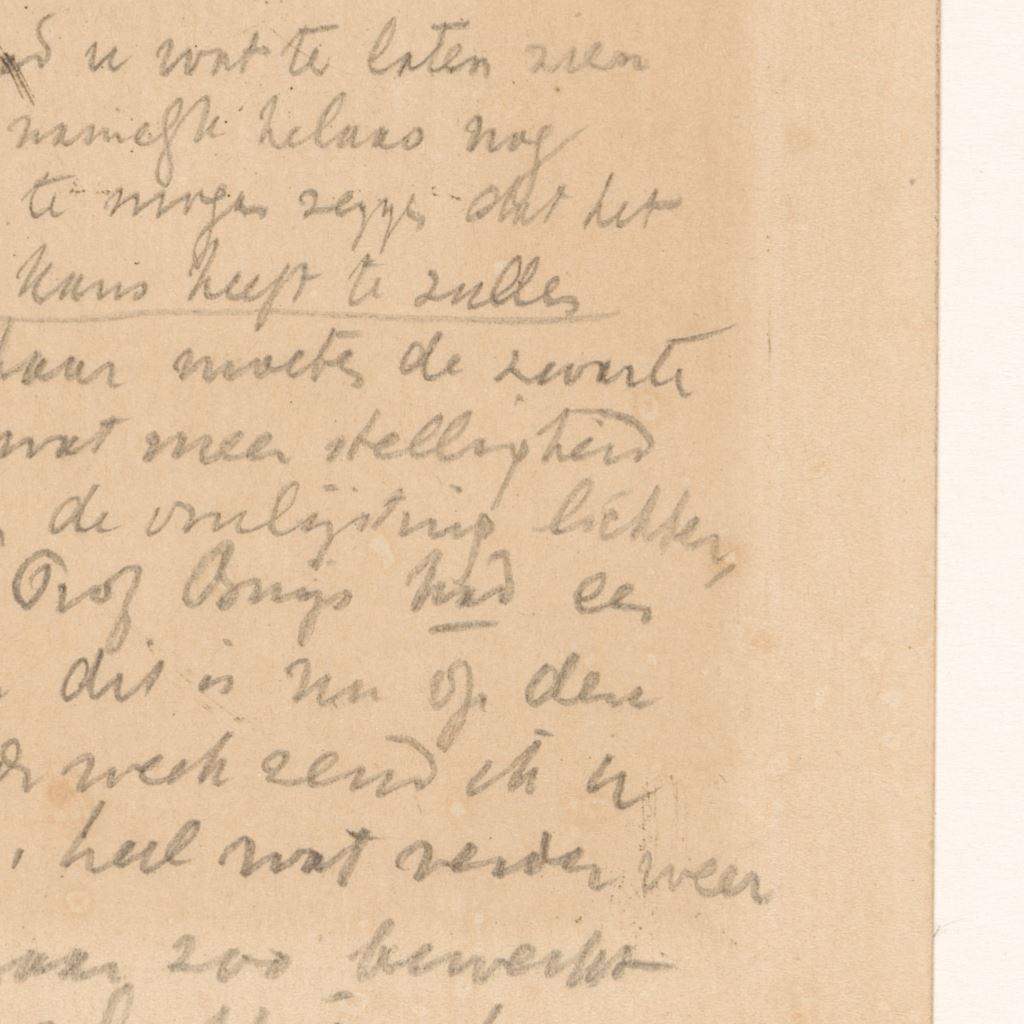 u wat te laten zien
namelijk helaas nog
te mogen zeggen dat het
kans heeft te zullen
daar moeten de zwarte
wat meer stelligheid
de omlijsting lichter,
Prof Buys had een
dit is nu op den
week zend ik u
, heel wat verder weer
zoo bewerkt